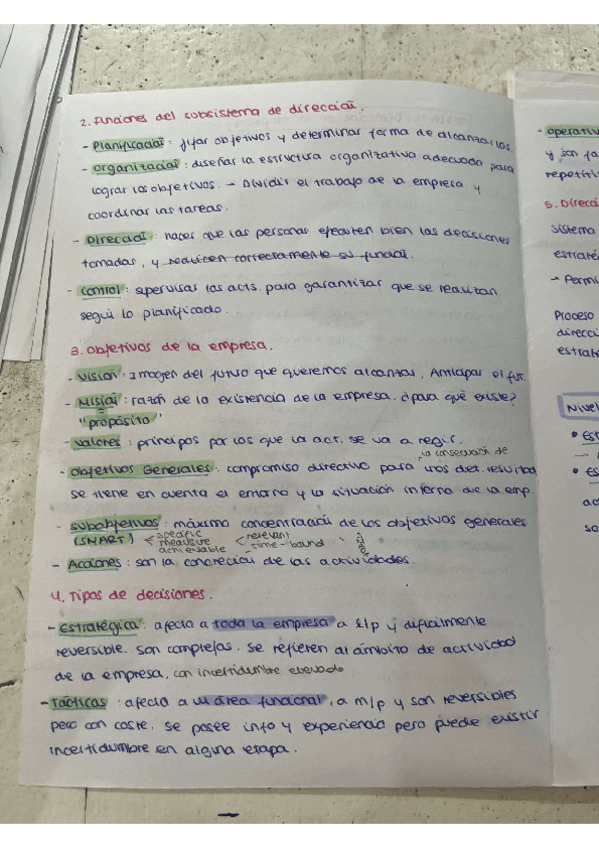 2. Funciones del subsistema de dirección.
- Planificación: fijar objetivos y determinar forma de alcanzarlos
- Organización: diseñar la estructura organizativa adecuada para
lograr los objetivos. → Dividir el trabajo de la empresa y
coordinar las tareas.
- Dirección: hacer que las personas ejecuten bien las decisiones
tomadas, y realicen correctamente su función.
- Control: supervisar las acts. para garantizar que se realizan
según lo planificado.
3. Objetivos de la empresa.
- Visión: Imagen del futuro que queremos alcanzar. Anticipar el fut.
- Misión: razón de la existencia de la empresa. ¿para qué existe?
"propósito"
- Valores: principios por los que la act. se va a regir.
la consecución de
- Objetivos Generales: compromiso directivo para unos det. resultad
se tiene en cuenta el entorno y la situación interna de la emp.
- Subobjetivos: máximo concentración de los objetivos generales
(SMART) < specific measure achievable < relevant time-bound
- Acciones: son la concreción de las actividades.
4. Tipos de decisiones.
- Estratégica: afecta a toda la empresa a l/p y dificilmente
reversible. Son complejas. Se refieren al ámbito de actividad
de la empresa, con incertidumbre elevada
- Tácticas: afecta a un área funcional, a m/p y son reversibles
pero con coste. Se posee info y experiencia pero puede existir
incertidumbre en alguna etapa.
- operativ
y son fa
repetiti
5. Direcci
sistema
estraté
→ Permi
Proceso
direcci
estraté
Nivel
• Est
• Es
ac
so